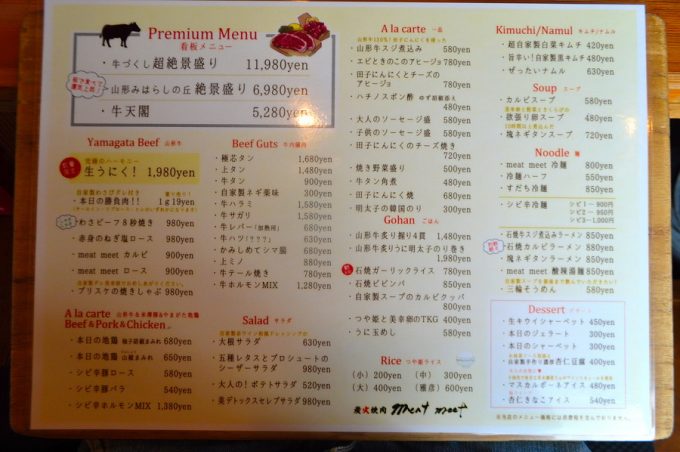 Premium Menu
看板メニュー
・牛づくし超絶景盛り 11,980yen
・山形みはらしの丘 絶景盛り 6,980yen
・牛天閣 5,280yen
Yamagata Beef 山形牛
究極のハーモニー
生うにく! 1,980yen
自家製わさびダレ付き
・本日の勝負肉!! 1g19yen
・わさビーフ8秒焼き 980yen
・赤身のねぎ塩ロース 980yen
・meat meet カルビ 900yen
・meat meet ロース 900yen
・ブリスケの焼きしゃぶ 980yen
Beef Guts 牛内臓肉
・極芯タン 1,680yen
・上タン 1,480yen
・牛タン 980yen
・自家製ネギ薬味 300yen
・牛ハラミ 1,480yen
・牛サガリ 1,480yen
・牛レバー(加熱用) 580yen
・牛ハツ(???) 480yen
・かみしめてシマ腸 680yen
・上ミノ 780yen
・牛テール焼き 780yen
・牛ホルモンMIX 1,280yen
A la carte 山形牛&米澤豚&やまがた地鶏
Beef&Pork&Chicken
・本日の地鶏 柚子胡椒まみれ 680yen
・本日の地鶏 山椒まみれ 660yen
・シビ辛豚ロース 580yen
・シビ辛豚バラ 540yen
・シビ辛ホルモンMIX 1,380yen
Salad サラダ
・大根サラダ 630yen
・五種レタスとプロシュートの
シーザーサラダ 980yen
・大人の!ポテトサラダ 530yen
・美デトックスセレブサラダ 980yen
A la carte 一品
・山形牛スジ煮込み 580yen
・エビときのこのアヒージョ 780yen
・田子にんにくとチーズの
アヒージョ 480yen
・ハチノスポン酢 ゆず胡椒添え 480yen
・大人のソーセージ盛 580yen
・子供のソーセージ盛 580yen
・田子にんにくのチーズ焼き 720yen
・焼き野菜盛り 580yen
・牛タン角煮 480yen
・田子にんにく焼 680yen
・明太子の韓国のり 300yen
Gohan ごはん
・山形牛炙り握り4貫 1,480yen
・山形牛炙りうに明太子のり巻き 1,980yen
・石焼ガーリックライス 980yen
・石焼ビビンバ 950yen
・自家製スープのカルビクッパ 800yen
・つや姫と美幸卵のTKG 400yen
・うに玉めし 580yen
Rice つや姫ライス
(小) 200yen (中) 300yen
(大) 400yen (雅彦) 600yen
炭火焼肉 meat meet
Kimuchi/Namul キムチ/ナムル
・超自家製白菜キムチ 420yen
・旨辛い!自家製黒キムチ 480yen
・ぜったいナムル 630yen
Soup スープ
・カルビスープ 580yen
・欲張り卵スープ 480yen
・塊ネギタンスープ 780yen
Noodle 麺
・meat meet 冷麺 800yen
・冷麺ハーフ 550yen
・すだち冷麺 850yen
・シビ辛冷麺 シビ1 ― 900円
シビ2 ― 950円
シビ3 ― 1,000円
・石焼牛スジ煮込みラーメン 850yen
・石焼カルビラーメン 850yen
・塊ネギタンラーメン 850yen
・meat meet 酸辣湯麺 850yen
・三輪そうめん 580yen
Dessert デザート
・生キウイシャーベット 450yen
・本日のジェラート 300yen
・本日のシャーベット 300yen
・自家製手作り濃厚杏仁豆腐 400yen
・マスカルポーネアイス 480yen
・杏仁きなこアイス 540yen